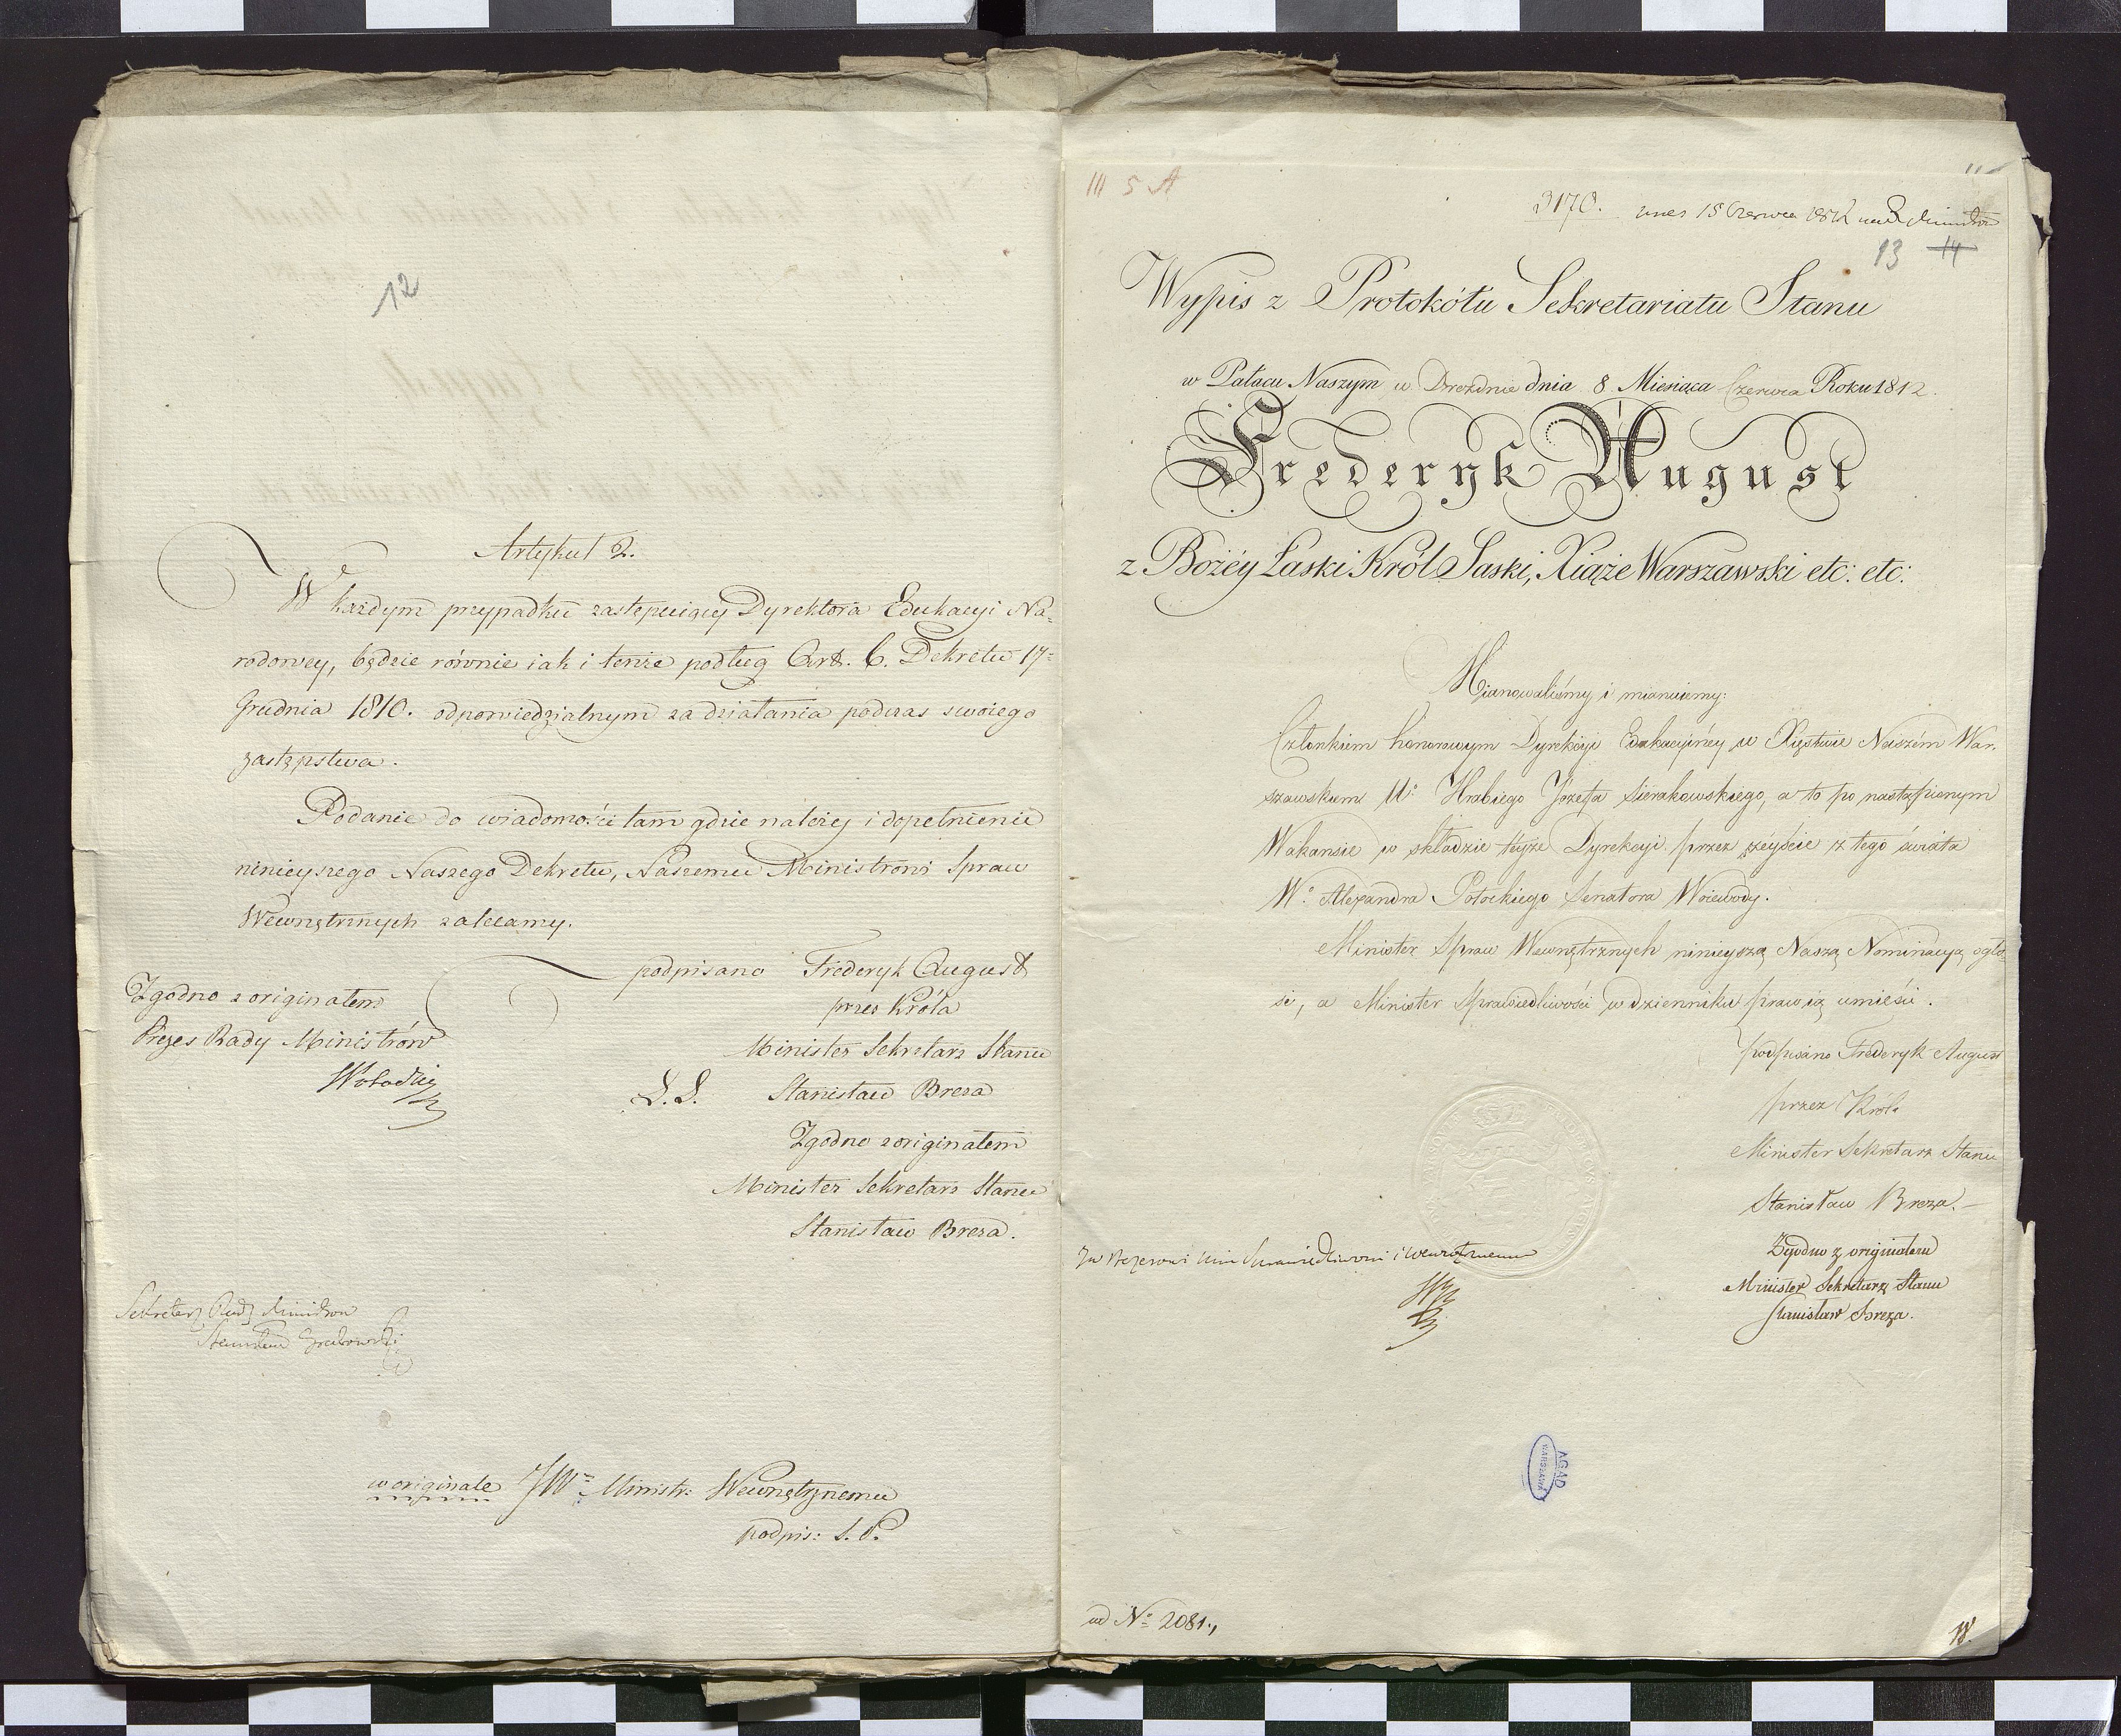 12
Artykuł 2.
W każdym przypadku zastępuiący Dyrektora Edukacyi Na=
rodowey, będzie równie iak i tenże podług Art. 6. Dekretu 17=
Grudnia 1810. odpowiedzialnym za działania podczas swoiego
zastępstwa.
Podanie do wiadomości tam gdzie należy i dopełnienie
ninieyszego Naszego Dekretu, Naszemu Ministrowi Spraw
Wewnętrznych zalecamy.
podpisano Frederyk August
przez Króla
Minister Sekretarz Stanu
L.S. Stanisław Breza
Zgodno z originałem
Minister Sekretarz Stanu
Stanisław Breza.
Zgodno z originałem
Prezes Rady Ministrów
Sekretarz Rady Ministrow
Stanisław Grabowski
w originale JW= Ministr: Wewnętrznemu
podpis: S. P.
III 5 A
11
3170. wnes 15 Czerwca 1812 Ministrow
13 14
Wypis z Protokółu Sekretariatu Stanu
w Pałacu Naszym w Dreźdnie dnia 8 Miesiąca Czerwca Roku 1812.
Frederyk August
z Bożéy Łaski Król Saski, Xiąże Warszawski etc: etc:
Mianowaliśmy i mianuiemy:
Członkiem honorowym Dyrekcyi Edukacyinéy w Xięstwie Naszém War.
szawskiem U: Hrabiego Józefa Sierakowskiego, a to po nastąpionym
Wakansie w składzie téyże Dyrekcyi przez zéyście z tego świata
W: Alexandra Potockiego Senatora Woiewody.
Minister Spraw Wewnętrznych ninieyszą Naszą Nominacyą ogło
si, a Minister Sprawiedliwości w dzienniku praw ią umieści.
podpisano Frederyk August
przez Króla
Minister Sekretarz Stanu
Stanisław Breza.-
Zgodno z originałem
Minister Sekretarz Stanu
Stanisław Breza.
JW Prezesowi Min Sprawiedliwosci i Wewnętrznemu
AGAD
WARSZAWA
ad No 2081.,
W.